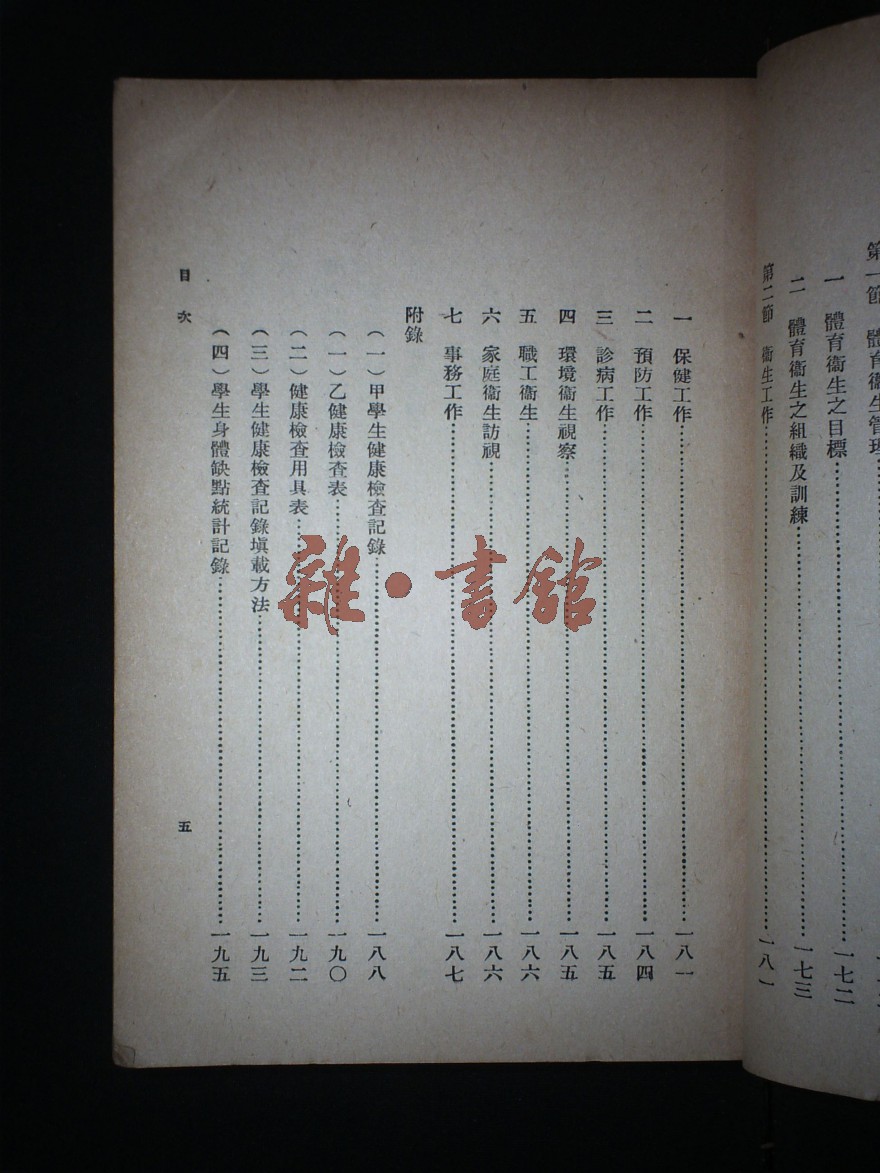 第一節 體育衞生管理
一 體育衞生之目標………一七二
二 體育衞生之組織及訓練………一七三
第二節 衞生工作………一八一
一 保健工作………一八一
二 預防工作………一八四
三 診病工作………一八五
四 環境衞生視察………一八五
五 職工衞生………一八六
六 家庭衞生訪視………一八六
七 事務工作………一八七
附錄
(一)甲學生健康檢查記錄………一八八
(一)乙健康檢查表………一九〇
(二)健康檢查用具表………一九二
(三)學生健康檢查記錄塡載方法………一九三
(四)學生身體缺點統計記錄………一九五
目次
五
雜·書館